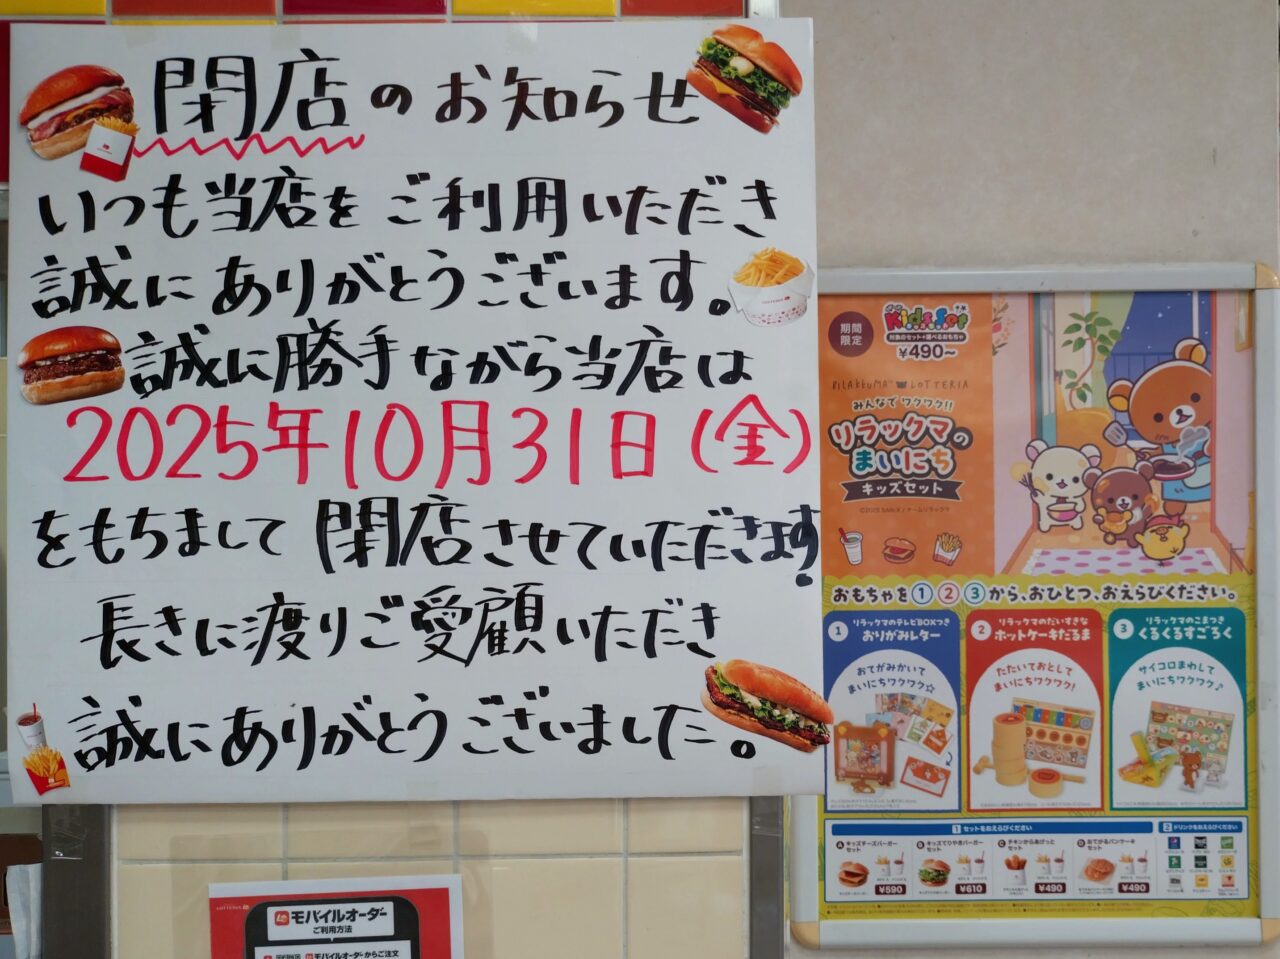 閉店のお知らせ
いつも当店をご利用いただき
誠にありがとうございます。
誠に勝手ながら当店は
2025年10月31日(金)
をもちまして閉店させていただきます!
長きに渡りご愛顧いただき
誠にありがとうございました。
期間
限定
Kids set
対象のセット+選べるおもちゃ
¥490~
RILAKKUMA LOTTERIA
みんなでワクワク!!
リラックマの
まいにち
キッズセット
おもちゃを①②③から、おひとつ、おえらびください。
1
リラックマのテレビBOXつき
おりがみレター
おてがみかいて
まいにちワクワク☆
2
リラックマのだいすきな
ホットケーキだるま
たたいておとして
まいにちワクワク!
3
リラックマのこまつき
くるくるすごろく
サイコロまわして
まいにちワクワク♪
1 セットをおえらびください
A キッズチーズバーガー
セット
¥590
B キッズてりやきバーガー
セット
¥610
C チキンからあげっと
セット
¥490
D おてがるパンケーキ
セット
¥490
2 ドリンクをおえらびください
モバイルオーダー
ご利用方法
モバイルオーダーからご注文